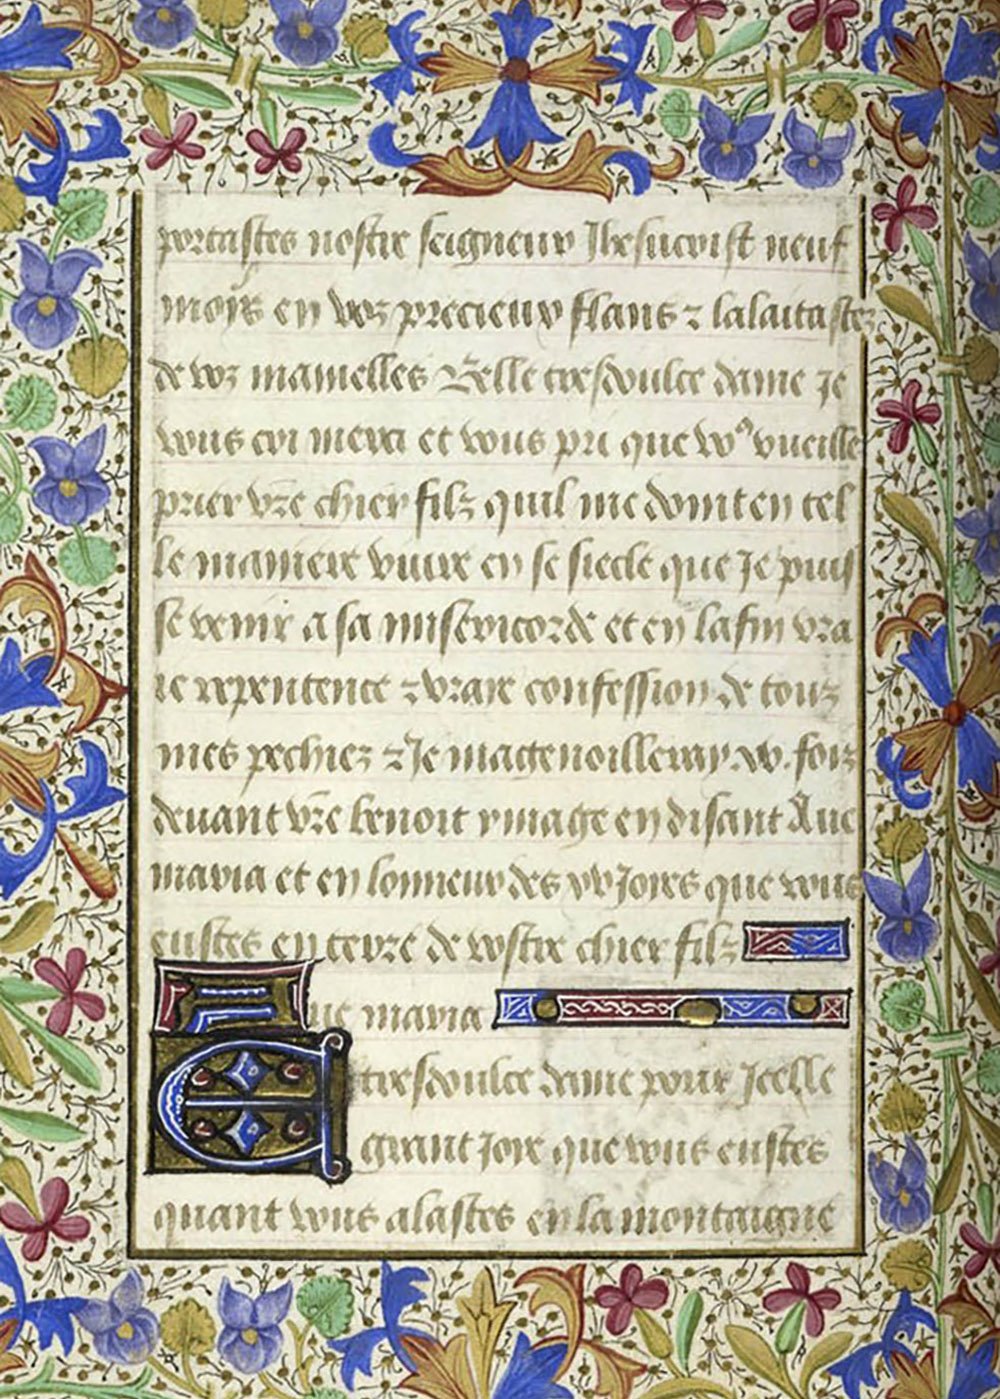 portastes nostre seigneur Jhesucrist neuf
moys en voz precieux flans ⁊ lalaitastez
de voz mamelles ⁊ celle tresdoulce dame je
vous cri merci et vous pri que voꝰ vueille
prier vr̃e chier filz quil me doint en tel
le maniere vivre en se siecle que Je puis
se venir a sa misericorde et en la fin vra
ie repentence ⁊ vraye confession de touz
mes pechiez ⁊ Je magenoilleray .xv. foiz
devant vr̃e benoit ymage en disant Ave
maria et en lonneur des xv Joyes que vous
eustes en terre de vostre chier filz
Ave maria
E tresdoulce dame pour Jcelle
grant Joye que vous eustes
quant vous alastes en la montaigne